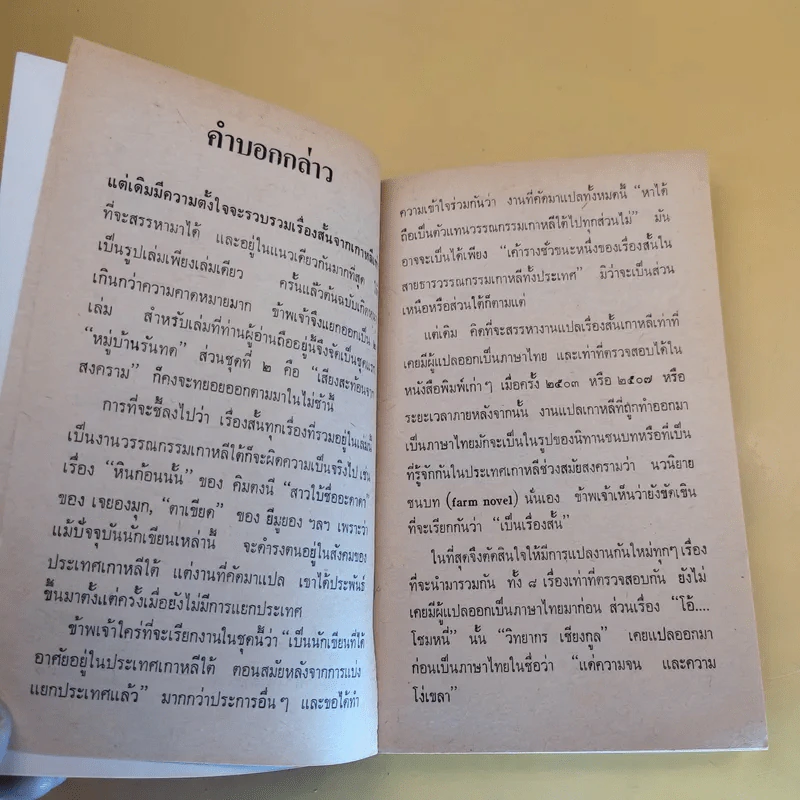 คำบอกกล่าว
แต่เดิมมีความตั้งใจจะรวบรวมเรื่องสั้นจากเกาหลีเท่า
ที่จะสรรหามาได้ และอยู่ในแนวเดียวกันมากที่สุด
เป็นรูปเล่มเพียงเล่มเดียว ครั้นแล้วต้นฉบับเกิด
เกินกว่าความคาดหมายมาก ข้าพเจ้าจึงแยกออกเป็น ๒
เล่ม สำหรับเล่มที่ท่านผู้อ่านถืออยู่นี้จึงจัดเป็นชุดแรก
“หมู่บ้านรันทด” ส่วนชุดที่ ๒ คือ “เสียงสะท้อนจาก
สงคราม” ก็คงจะทยอยออกตามมาในไม่ช้านี้
การที่จะชี้ลงไปว่า เรื่องสั้นทุกเรื่องที่รวมอยู่ในเล่มนี้
เป็นงานวรรณกรรมเกาหลีใต้ก็จะผิดความเป็นจริงไป เช่น
เรื่อง “หินก้อนนั้น” ของ คิมตงนี “สาวใบ้ชื่ออะดาดา”
ของ เจยองมุก, “ตาเขียด” ของ ยีมูยอง ฯลฯ เพราะว่า
แม้ปัจจุบันนักเขียนเหล่านี้ จะดำรงตนอยู่ในสังคมของ
ประเทศเกาหลีใต้ แต่งานที่คัดมาแปล เขาได้ประพันธ์
ขึ้นมาตั้งแต่ครั้งเมื่อยังไม่มีการแยกประเทศ
ข้าพเจ้าใคร่ที่จะเรียกงานในชุดนี้ว่า “เป็นนักเขียนที่ได้
อาศัยอยู่ในประเทศเกาหลีใต้ ตอนสมัยหลังจากการแบ่ง
แยกประเทศแล้ว” มากกว่าประการอื่น ๆ และขอได้ทำ
ความเข้าใจร่วมกันว่า งานที่คัดมาแปลทั้งหมดนี้ “หาได้
ถือเป็นตัวแทนวรรณกรรมเกาหลีใต้ไปทุกส่วนไม่” มัน
อาจจะเป็นได้เพียง “เค้ารางชั่วขณะหนึ่งของเรื่องสั้นใน
สายธารวรรณกรรมเกาหลีทั้งประเทศ” มิว่าจะเป็นส่วน
เหนือหรือส่วนใต้ก็ตามแต่
แต่เดิม คิดที่จะสรรหางานแปลเรื่องสั้นเกาหลีเท่าที่
เคยมีผู้แปลออกเป็นภาษาไทย และเท่าที่ตรวจสอบได้ใน
หนังสือพิมพ์เก่า ๆ เมื่อครั้ง ๒๕๐๓ หรือ ๒๕๐๗ หรือ
ระยะเวลาภายหลังจากนั้น งานแปลเกาหลีที่ถูกทำออกมา
เป็นภาษาไทยมักจะเป็นในรูปของนิทานชนบทหรือที่เป็น
ที่รู้จักกันในประเทศเกาหลีช่วงสมัยสงครามว่า นวนิยาย
ชนบท (farm novel) นั่นเอง ข้าพเจ้าเห็นว่ายังขัดเขิน
ที่จะเรียกกันว่า “เป็นเรื่องสั้น”
ในที่สุดจึงตัดสินใจให้มีการแปลงานกันใหม่ทุก ๆ เรื่อง
ที่จะนำมารวมกัน ทั้ง ๘ เรื่องเท่าที่ตรวจสอบกัน ยังไม่
เคยมีผู้แปลออกเป็นภาษาไทยมาก่อน ส่วนเรื่อง “โอ้....
โชมหนี่” นั้น “วิทยากร เชียงกูล” เคยแปลออกมา
ก่อนเป็นภาษาไทยในชื่อว่า “แด่ความจน และความ
โง่เขลา”